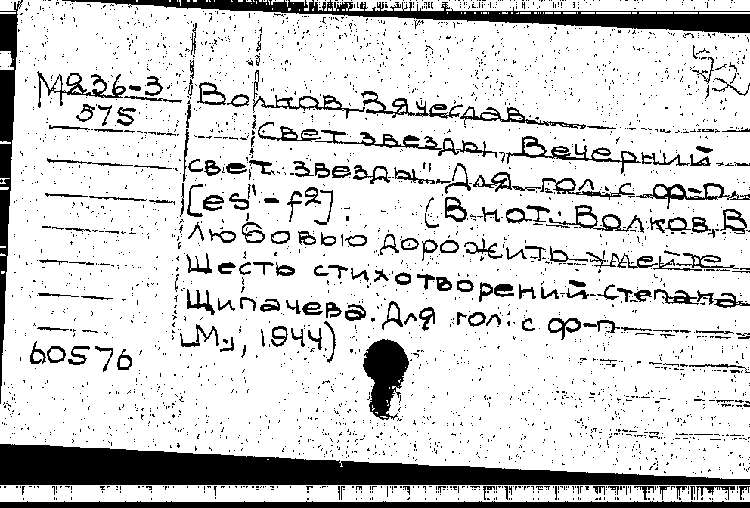 72
М236-3
575
Волков, Вячеслав.
Свет звезды „Вечерний
свет звезды". Для гол. с ф-п.
[es¹-f²]. (В нот.: Волков, В
Любовью дорожить умейте.
Шесть стихотворений Степана
Щипачева. Для гол. с ф-п
М., 1944).
60576